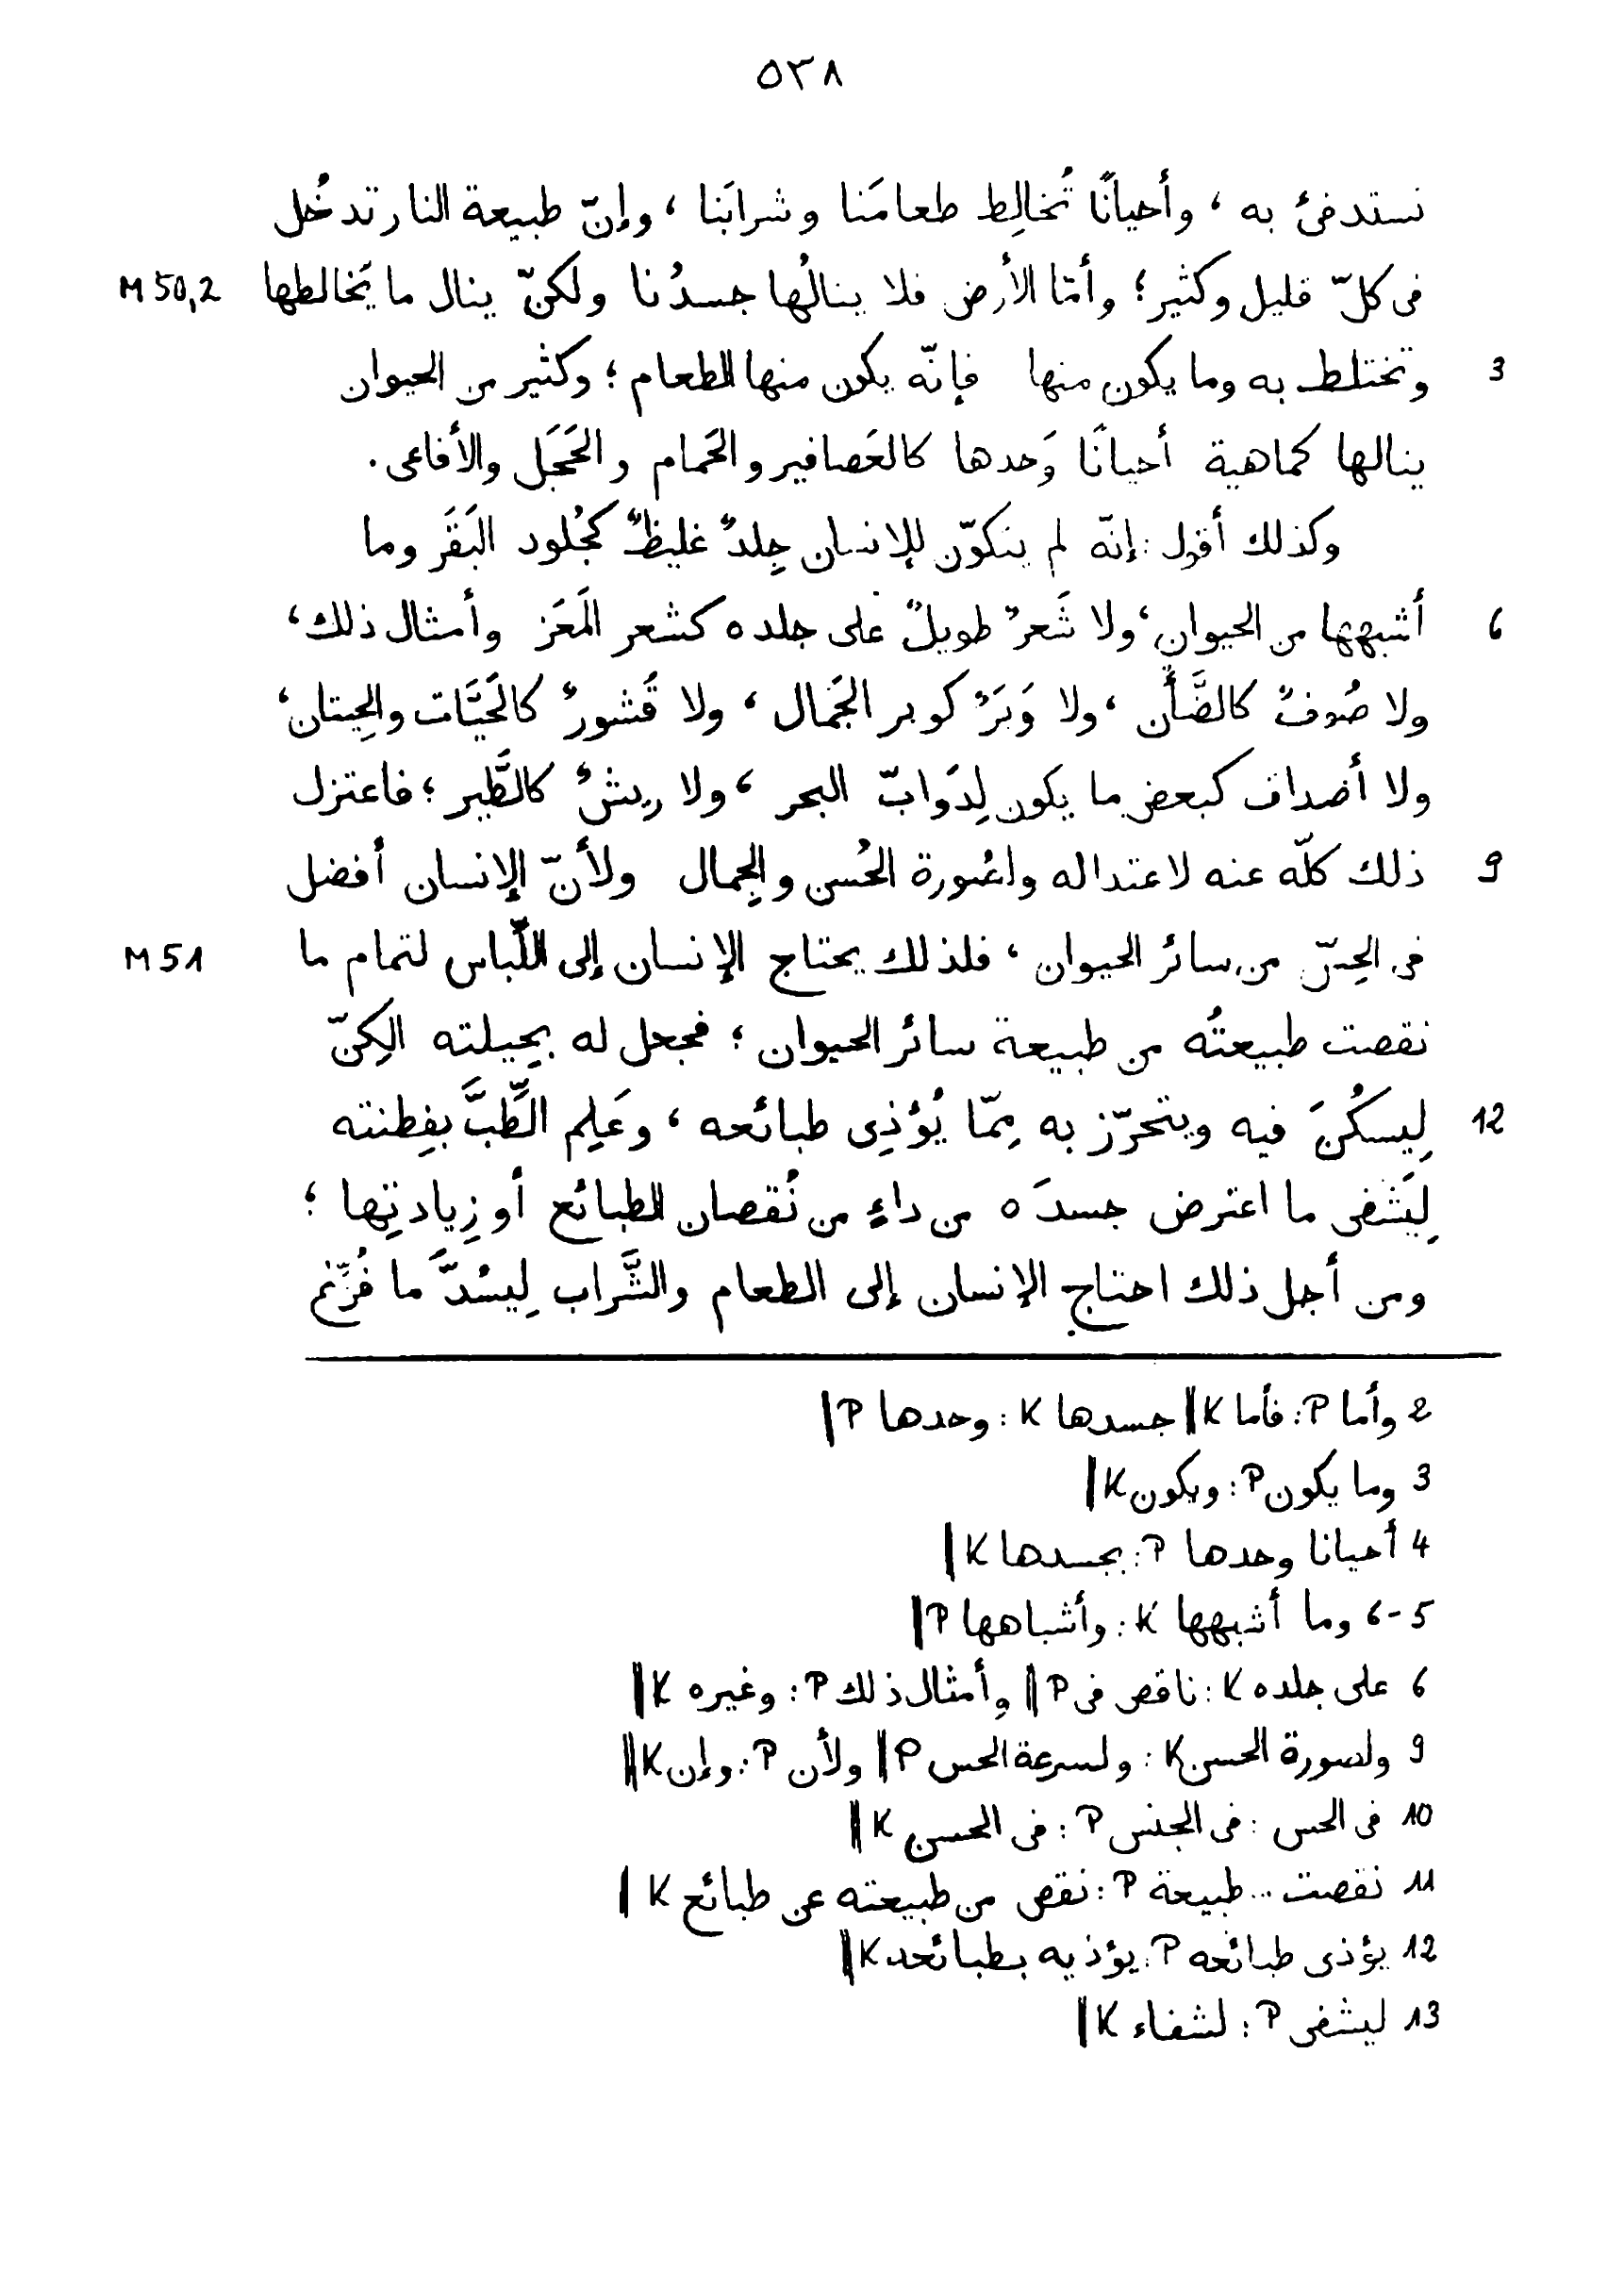 ٥٣٨
نستدفئ به ، وأحيانًا تُخالِط طعامَنا وشرابَنا ، وإنّ طبيعة النار تدخُل
M 50,2 فى كلّ قليل وكثير ؛ وأمّا الأرض فلا ينالُها جسدُنا ولكنّ ينال ما يُخالطها
3 وتختلط به وما يكون منها فإنّه يكون منها الطعام ؛ وكثير من الحيوان
ينالها كماهية أحيانًا وَحدها كالعَصافير والحَمام والحَجَل والأفاعى .
وكذلك أقول : إنّه لم يتكوّن للإنسان جِلدٌ غليظٌ كجُلود البَقَر وما
6 أشبهها من الحيوان ، ولا شَعرٌ طويلٌ على جلده كشعر المَعَز وأمثال ذلك ،
ولا صُوفٌ كالضَّأن ، ولا وَبَرٌ كوبر الجَمال ، ولا قُشورٌ كالحَيَّات والحِيتان ،
ولا أصداف كبعض ما يكون لِدَوابّ البحر ، ولا ريشٌ كالطَّير ؛ فاعتزل
9 ذلك كلّه عنه لاعتداله ولصُورة الحُسن والجمال ولأنّ الإنسان أفضل
M 51 فى الحِسّ من سائر الحيوان ، فلذلك يحتاج الإنسان إلى اللِّباس لتمام ما
نقصت طبيعتُه من طبيعة سائر الحيوان ؛ فجعل له بحِيلته الكِنّ
12 لِيسكُنَ فيه ويتحرّز به مِمّا يُؤذِى طبائعه ، وعَلِم الطِّبَّ بفِطنته
لِيَشفى ما اعترض جسدَه من داءٍ من نُقصان الطبائع أو زِيادتِها ؛
ومن أجل ذلك احتاج الإنسان إلى الطعام والشَّراب لِيسُدَّ ما فُرِّغ
2 وأما P : فأما K || جسدها K : وحدها P |
3 وما يكون P : ويكون K |
4 أحيانا وحدها P : بجسدها K |
5-6 وما أشبهها K : وأشباهها P ||
6 على جلده K : ناقص فى P || وأمثال ذلك P : وغيره K ||
9 ولصورة الحسن K : ولسرعة الحس P || ولأن P : وإن K ||
10 فى الحس : فى الجنس P : فى الحسن K ||
11 نقصت .. طبيعة P : نقص من طبيعته عن طبائع K |
12 يؤذى طبائعه P : يؤذيه بطبائعه K ||
13 ليشفى P : لشفاء K ||